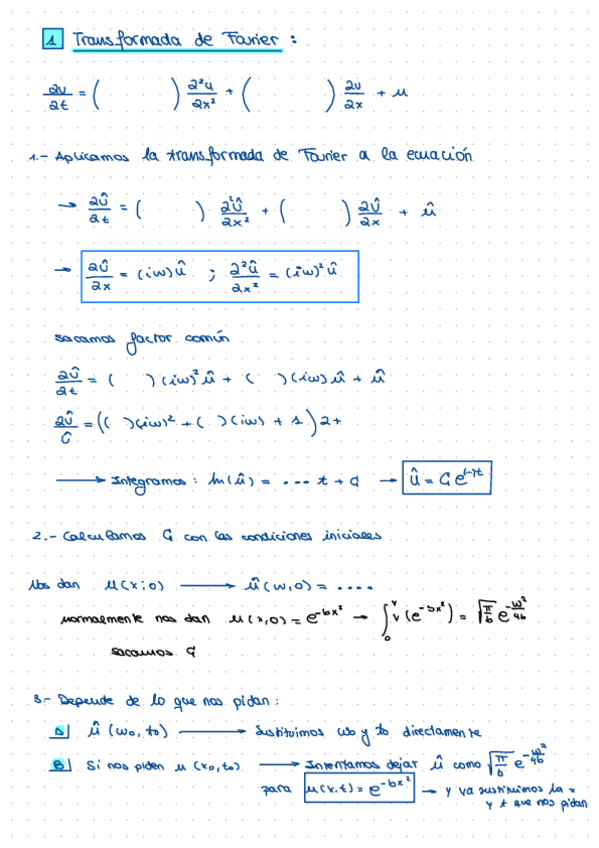 1 Transformada de Fourier :
∂u/∂t = ( ) ∂²u/∂x² + ( ) ∂u/∂x + u
1.- Aplicamos la transformada de Fourier a la ecuación
→ ∂û/∂t = ( ) ∂²û/∂x² + ( ) ∂û/∂x + û
→ ∂û/∂x = (iω)û ; ∂²û/∂x² = (iω)²û
sacamos factor común
∂û/∂t = ( )(iω)²û + ( )(iω)û + û
∂û/û = (( )(iω)² + ( )(iω) + 1) ∂t
→ Integramos : ln(û) = ... t + C → û = C e^(-)t
2.- Calculamos C con las condiciones iniciales
Nos dan u(x,0) → û(ω,0) = ....
normalmente nos dan u(x,0) = e^-bx² → ∫ (e^-bx²) = √(π/b) e^-ω²/4b
sacamos C
3.- Depende de lo que nos pidan :
A) û(ω₀, t₀) → sustituimos ω₀ y t₀ directamente
B) Si nos piden u(x₀,t₀) → Intentamos dejar û como √(π/b) e^-ω²/4b
para u(x,t) = e^-bx² → y ya sustituimos la x
y t que nos pidan